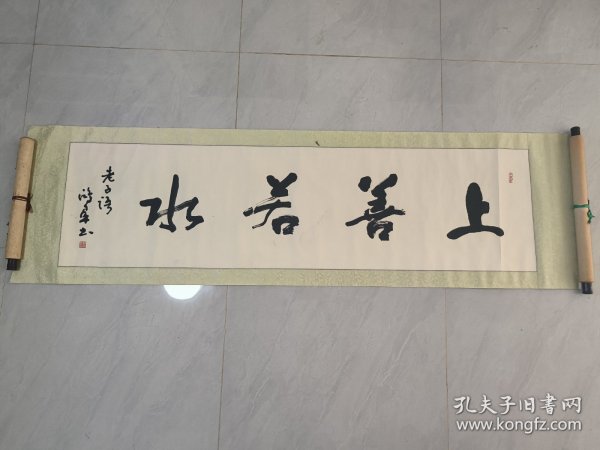 上善若水
老子语
孔夫子旧書网
www.kongfz.com